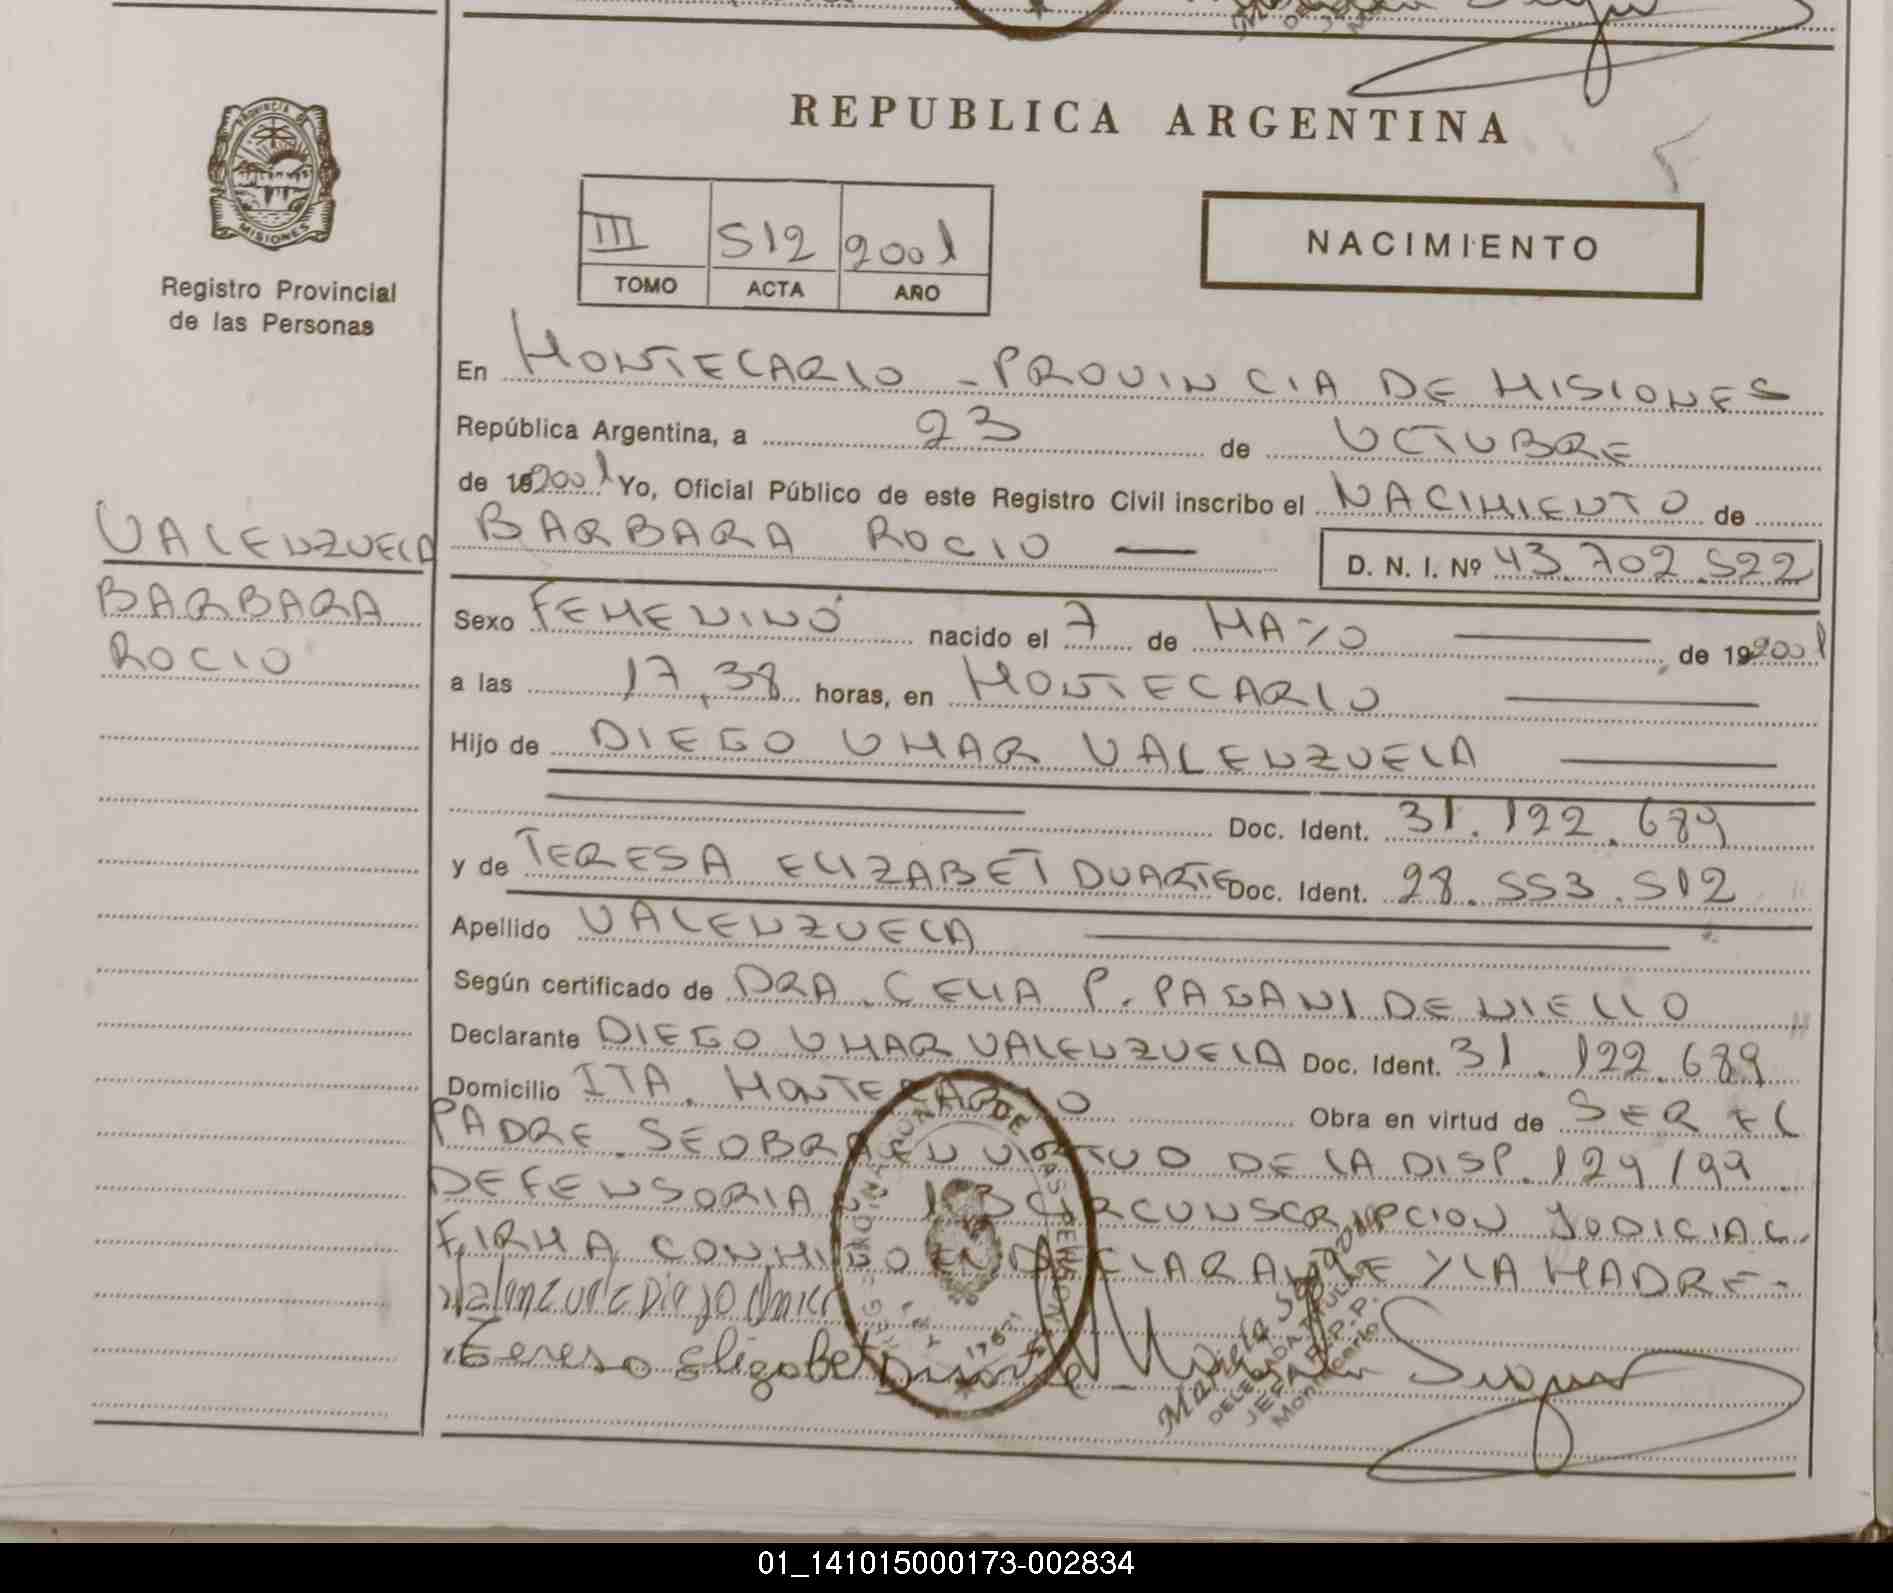 REPUBLICA ARGENTINA
PROVINCIA DE
MISIONES
Registro Provincial
de las Personas
III 512 2001
TOMO ACTA AÑO
NACIMIENTO
En MONTECARLO - PROVINCIA DE MISIONES
República Argentina, a 23 de OCTUBRE
de 192001 Yo, Oficial Público de este Registro Civil inscribo el NACIMIENTO de
VALENZUELA
BARBARA
ROCIO
BARBARA ROCIO — D. N. I. Nº 43.702.522
Sexo FEMENINO nacido el 7 de MAYO — de 192001
a las 17,38 horas, en MONTECARLO —
Hijo de DIEGO OMAR VALENZUELA —
Doc. Ident. 31.122.689
y de TERESA ELIZABET DUARTE Doc. Ident. 28.553.512
Apellido VALENZUELA —
Según certificado de DRA. CELIA P. PAGANI DE NIELLO
Declarante DIEGO OMAR VALENZUELA Doc. Ident. 31.122.689
Domicilio ITA. MONTECARLO Obra en virtud de SER EL
PADRE. SE OBRA EN VIRTUD DE LA DISP. 129/99.
DEFENSORIA CIRCUNSCRIPCION JUDICIAL.
FIRMA CONMIGO EL DECLARANTE Y LA MADRE-
Valenzuela Diego Omar
Teresa Elizabet Duarte
Mariela
DELEGADA TITULAR
JEFA R.P.P.
Montecarlo
01_141015000173-002834